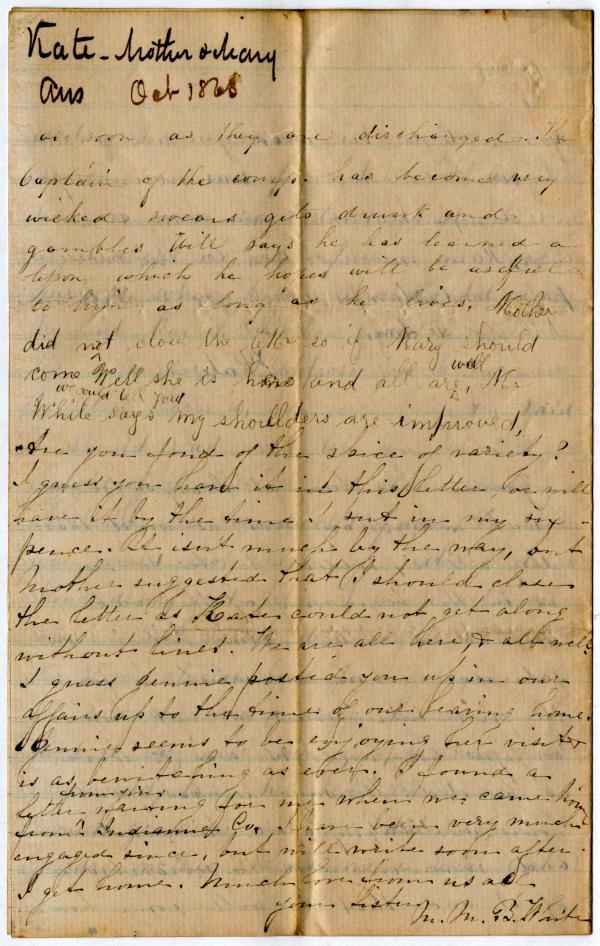 Kate - Mother & Mary
Ans Oct 1865
as soon as they are discharged. The
Captain of the comp. has become very
wicked swears gets drunk and
gambles Will says he has learned a
lesson which he hopes will be useful
to him as long as he lives. Mother
did not close the letter so if Mary should
come we could tell you Well she is here and all are well, Mr
White says my shoulders are improved,
Are you fond of the spice of variety?
I guess you have it in this letter, or will
have it by the time I put in my six-
pence. It isnt much by the way, but
Mother suggested that I should close
the letter as Kate could not get along
without lines. We are all here, & all well.
I guess Jennie posted you up in our
affairs up to the time of our leaving home.
Jennie seems to be enjoying her visit &
is as bewitching as ever. I found a
letter from you waiting for me when we came home
from Indiana Co. I have been very much
engaged since, but will write soon after
I get home. Much love from us all
your sister
M. M. B. White